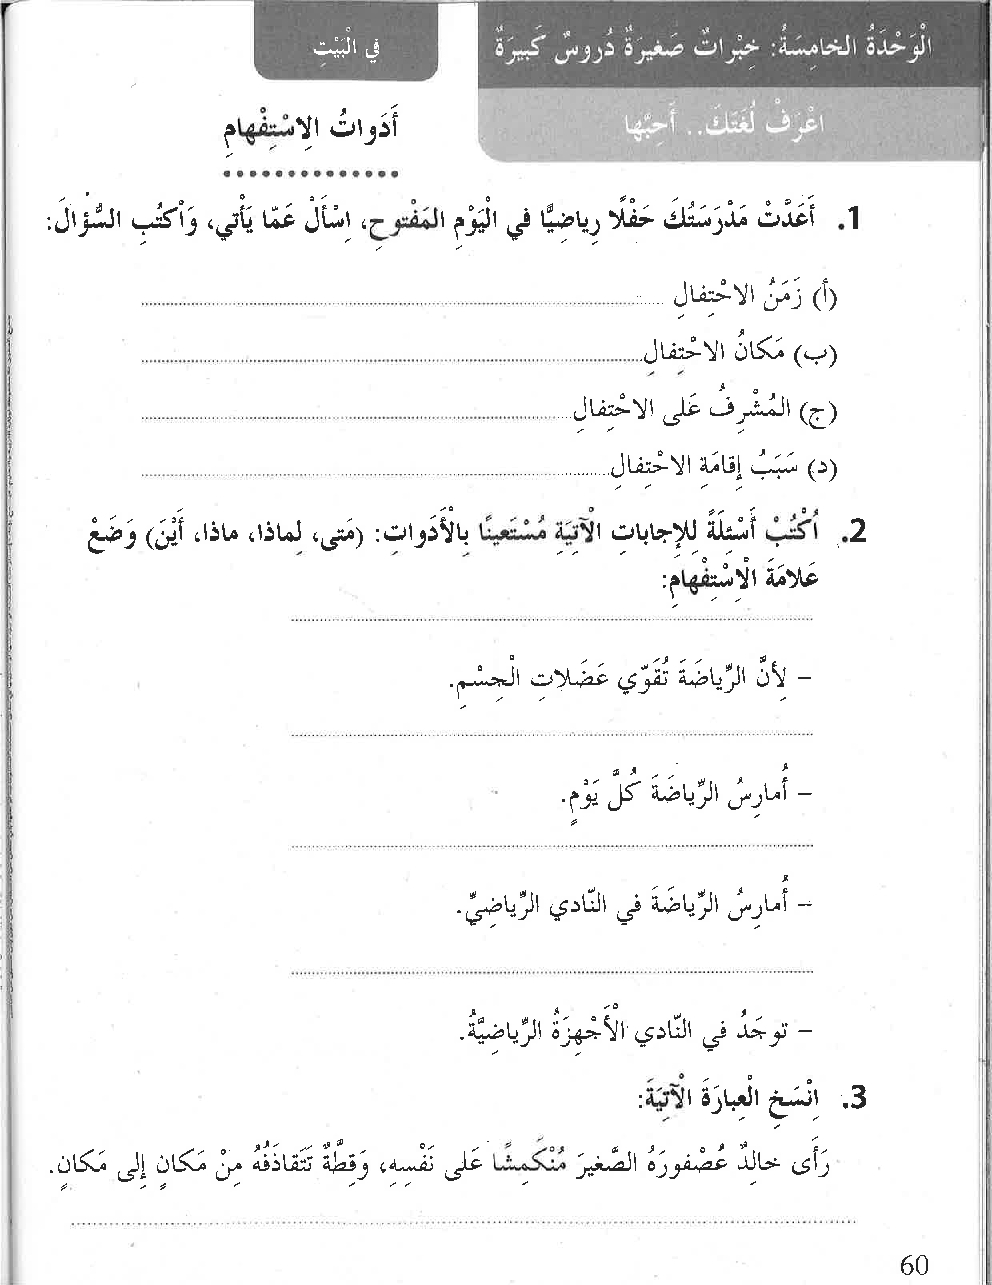 الْوَحْدَةُ الخامِسَةُ: خِبْراتٌ صَغيرَةٌ دُروسٌ كَبيرَةٌ
في الْبَيْتِ
اعْرَفْ لُغَتَكَ.. أَحِبَّها
أَدَواتُ الِاسْتِفْهامِ
1. أَعَدَّتْ مَدْرَسَتُكَ حَفْلًا رِياضِيًّا في الْيَوْمِ المَفْتوحِ، اِسْأَلْ عَمّا يَأْتي، وَاْكتُبِ السُّؤالَ:
(أ) زَمَنُ الاحْتِفالِ
(ب) مَكانُ الاحْتِفالِ
(ج) المُشْرِفُ عَلى الاحْتِفالِ
(د) سَبَبُ إِقامَةِ الاحْتِفالِ
2. اُكْتُبْ أَسْئِلَةً لِلإِجاباتِ الْآتِيَةِ مُسْتَعينًا بِالْأَدَواتِ: (مَتى، لماذا، ماذا، أَيْنَ) وَضَعْ
عَلامَةَ الْاسْتِفْهامِ:
- لِأَنَّ الرِّياضَةَ تُقَوّي عَضَلاتِ الْجِسْمِ.
- أُمارِسُ الرِّياضَةَ كُلَّ يَوْمٍ.
- أُمارِسُ الرِّياضَةَ في النّادي الرِّياضِيِّ.
- توجَدُ في النّادي الْأَجْهِزَةُ الرِّياضِيَّةُ.
3. اِنْسَخِ الْعِبارَةَ الْآتِيَةَ:
رَأى خالِدٌ عُصْفورَهُ الصَّغيرَ مُنْكَمِشًا عَلى نَفْسِهِ، وَقِطَّةٌ تَتَقاذَفُهُ مِنْ مَكانٍ إِلى مَكانٍ.
60